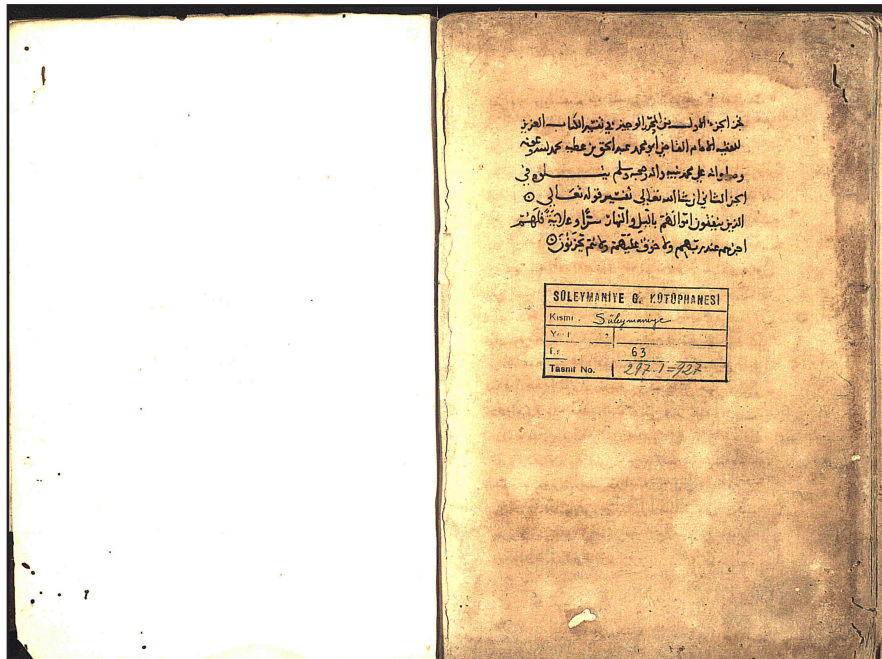 نجز الجزء الاول من المحرر الوجيز في تفسير الكتاب العزيز
للفقيه الامام القاضي ابو محمد عبد الحق بن عطيه بحمد الله وعونه
وصلواته على محمد نبيه واله وصحبه وسلم يتلوه في
الجز الثاني ان شا الله تعالى تفسير قوله تعالى ⊙
الذين ينفقون اموالهم بالليل والنهار سرًا وعلانيةً فلهم
اجرهم عند ربهم ولا خوف عليهم ولا هم يحزنون ⊙
SÜLEYMANİYE G. KÜTÜPHANESİ
Kısmı Süleymaniye
63
Tasnif No. 297.1=927